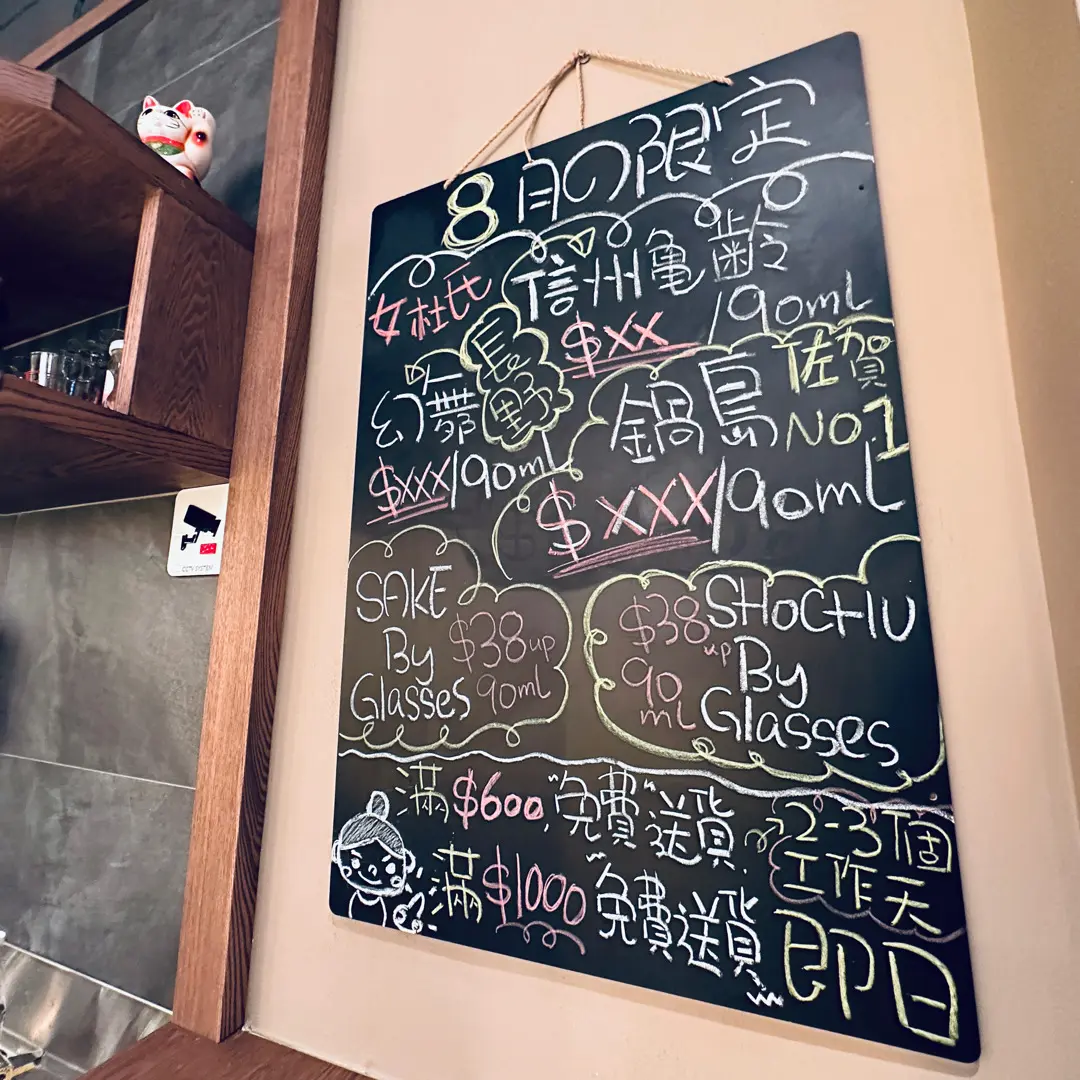 8月の限定
女杜氏
信州亀齢
$XX /90mL
長野
幻舞
$XXX/90mL
佐賀
鍋島 NO1
$XXX/90mL
SAKE
By
Glasses
$38up
90mL
SHOCHU
By
Glasses
$38up
90
mL
滿$600,"免費"送貨,
2-3個
工作天
滿$1000"免費送貨
即日
CCTV SYSTEM